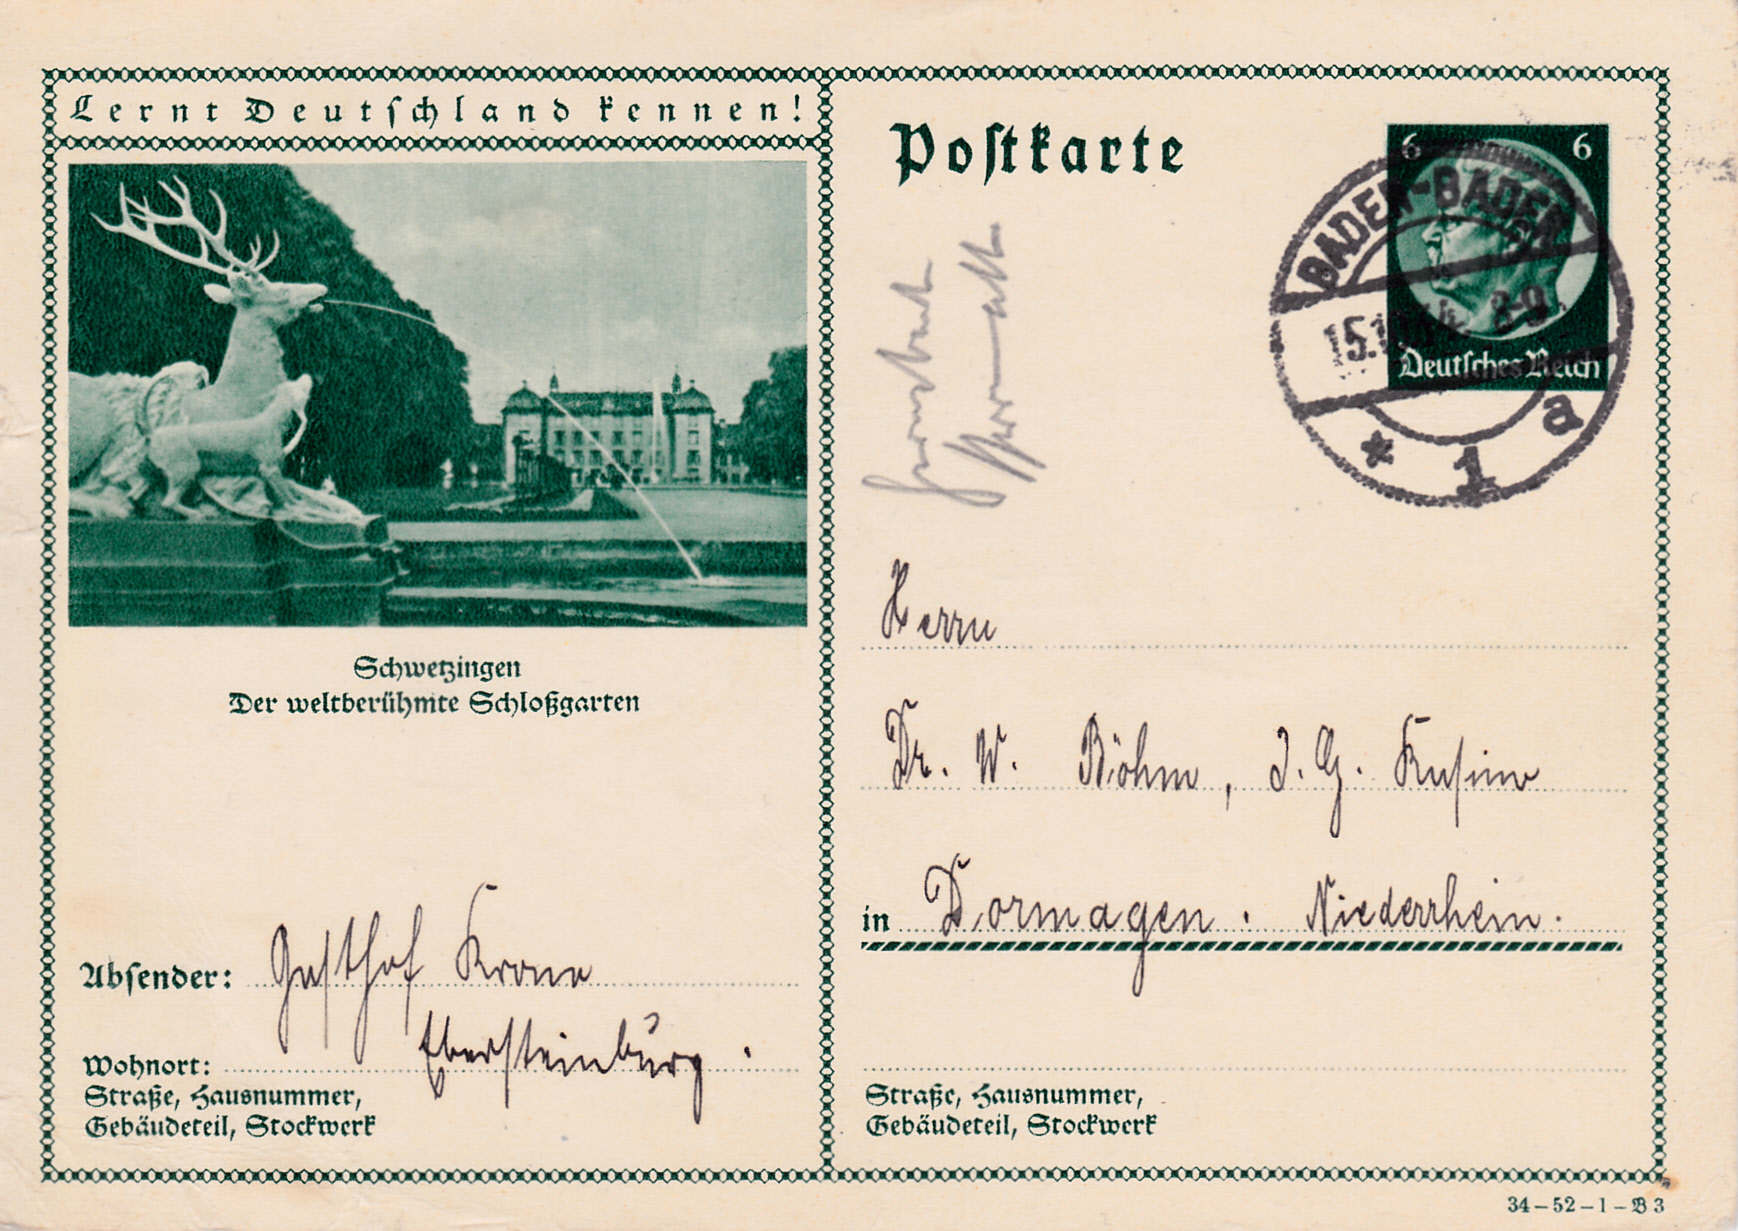 Lernt Deutschland kennen!
Schwetzingen
Der weltberühmte Schloßgarten
Absender: Gasthof Krone
Wohnort: Ebersteinburg.
Straße, Hausnummer,
Gebäudeteil, Stockwerk
Postkarte
6 6
Deutsches Reich
BADEN-BADEN
8-9
* 1 a
Herrn
Dr. W. Böhm, I. G. Kasino
in Dormagen. Niederrhein.
Straße, Hausnummer,
Gebäudeteil, Stockwerk
34-52-1-B3